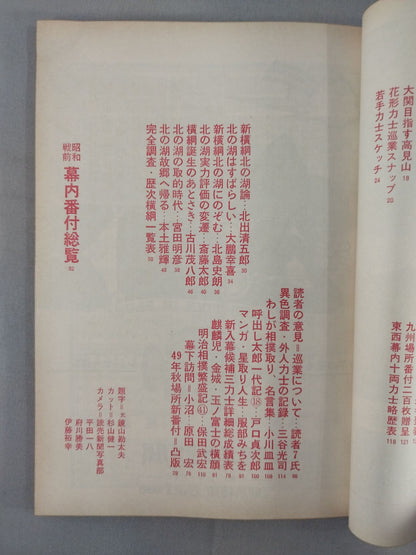 大関目指す高見山 18
花形力士巡業スナップ 20
若手力士スケッチ 24
新横綱北の湖論…北出清五郎 30
北の湖はすばらしい…大鵬幸喜 34
新横綱北の湖にのぞむ…北島史朗 36
北の湖実力評価の変遷…斎藤太郎 40
横綱誕生のあとさき…古川茂八郎 46
北の湖の取的時代…宮田明彦 38
北の湖故郷へ帰る…本土雅輝 48
完全調査・歴次横綱一覧表 50
昭和戦前 幕内番付総覧 92
九州場所番付二百枚贈呈 121
東西幕内十両力士略歴表 118
読者の意見=巡業について…読者7氏 86
異色調査・外人力士の記録…三谷光司 114
わしが相撲取り、名言集…小川皿皿 100
呼出し太郎一代記⑱…戸口貞次郎
マンガ・星取り人生…服部みちを
新入幕候補三力士詳細総成績表
麒麟児・金城・玉ノ富士の横顔
明治相撲繁盛記㊶…保田武宏 110
幕下訪問=小沼 原田 宏 76
49年秋場所新番付=凸版
題字=元鏡山勘太夫
カット=杉山健一
カメラ=読売新聞写真部
平田一八
府川勝美
伊藤裕幸